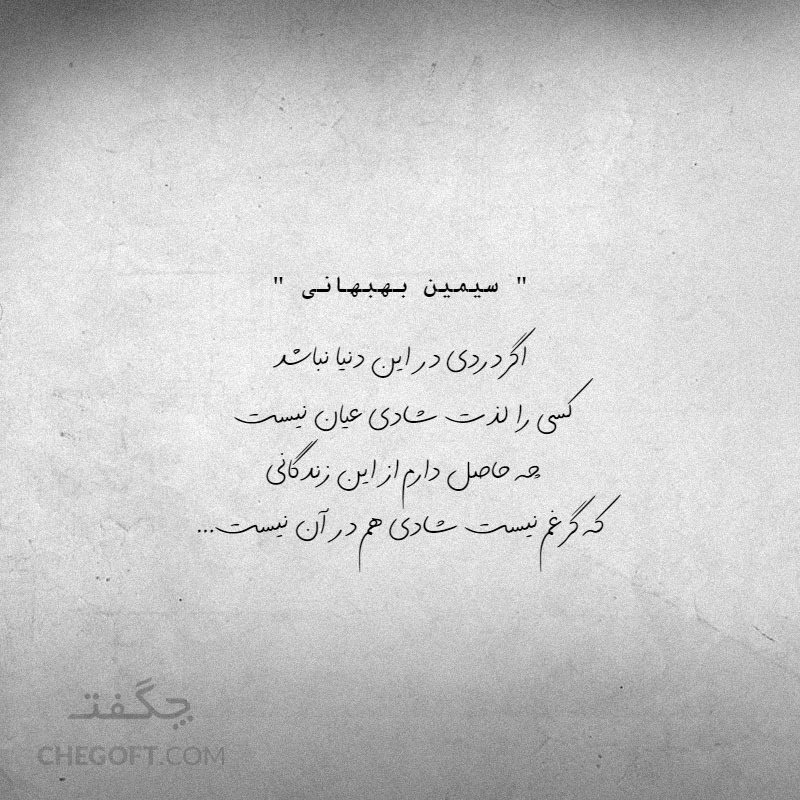 " سیمین بهبهانی "
اگر دردی در این دنیا نباشد
کسی را لذت شادی عیان نیست
چه حاصل دارم از این زندگانی
که گر غم نیست شادی هم در آن نیست...
چگفت
CHEGOFT.COM